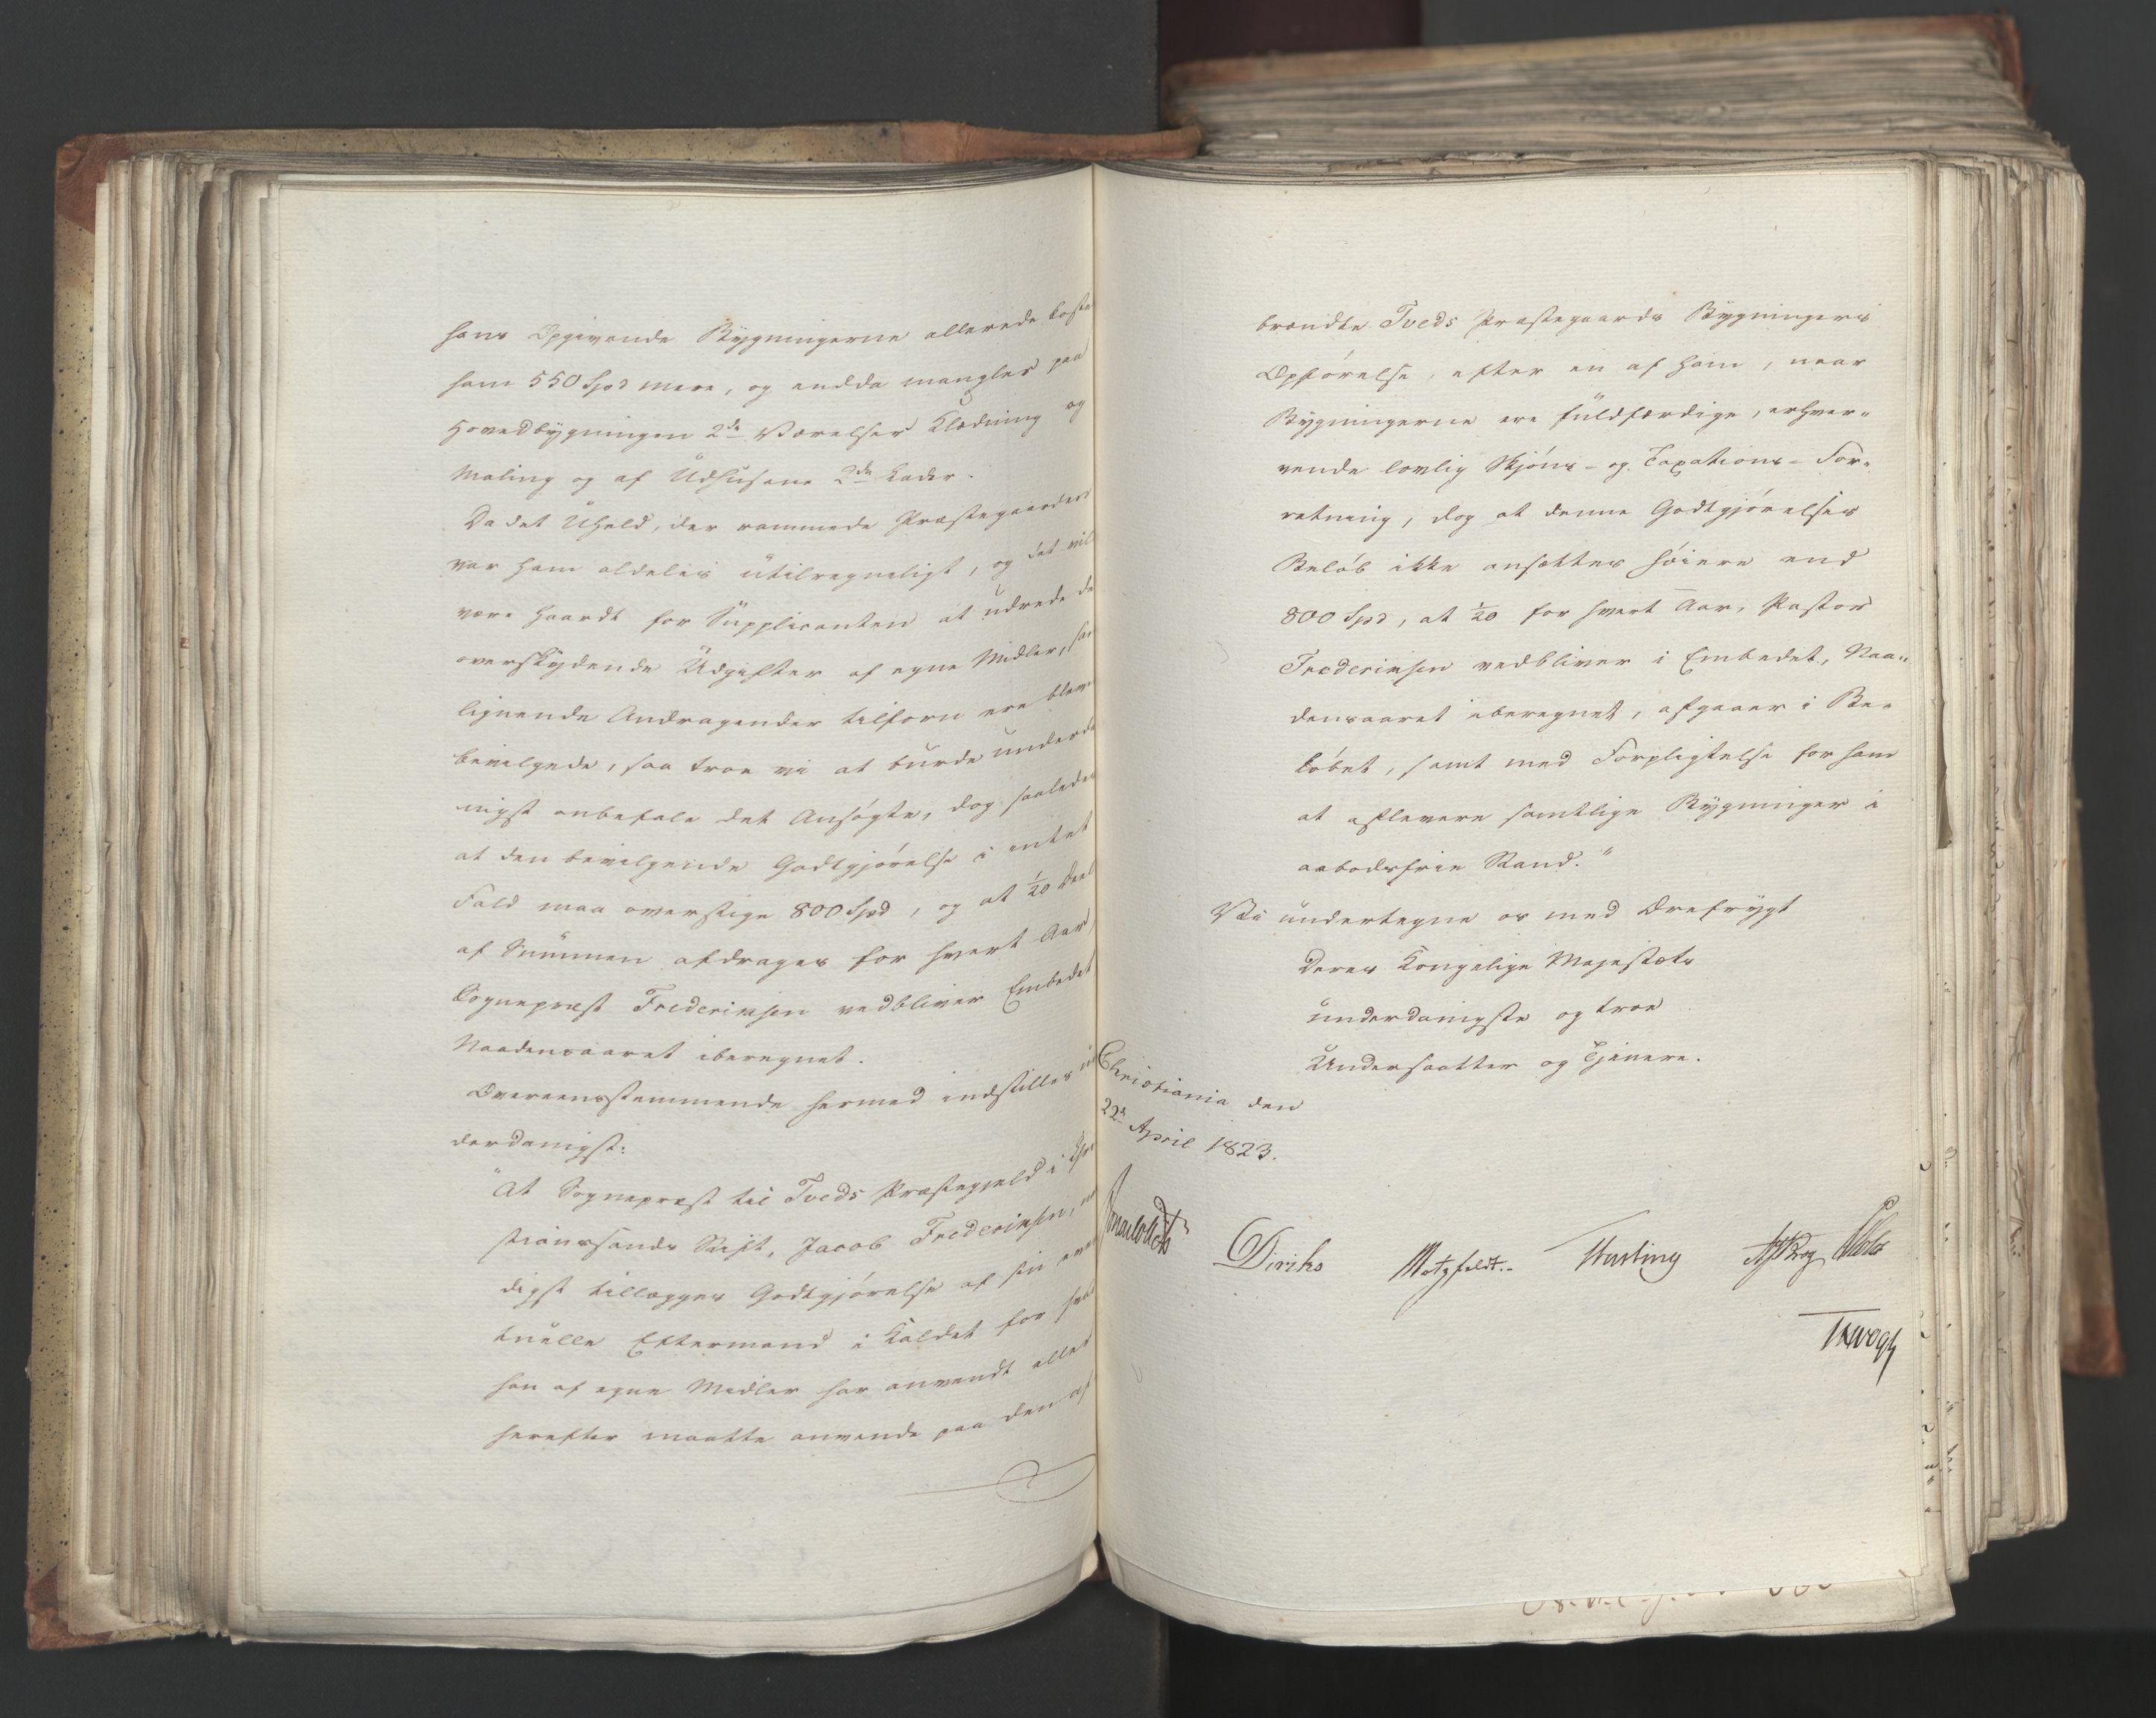 hans Opgivende Bygningerne allerede koste
ham 550 Spd mere, og endda mangler paa
Hovedbygningen 2de Værelser Klædning og
Maling og af Udhusene 2de Lader.
Da det Uheld, der rammede Præstegaarden
var ham aldeles utilregneligt, og det vil
være haardt for Supplicanten at udrede de
overskydende Udgifter af egne Midler, sa
lignende Andragender tilforn ere bleve
bevilgede, saa troe vi at burde underda
nigst anbefale det Ansøgte, dog saaledes
at den bevilgende Godtgjørelse i intet
Fald maa overstige 800 Spd, og at 1/20 Deel
af Summen afdrages for hvert Aar,
Sognepræst Frederiksen vedbliver Embedet
Naadensaaret iberegnet.
Overeensstemmende hermed indstilles u
derdanigst:
"At Sognepræst til Tveds Præstegjeld i Chri
stianssands Stift, Jacob Frederiksen, n
digst tillægges Godtgjørelse af sin even
tuelle Eftermand i Kaldet for hvad
han af egne Midler har anvendt eller
herefter maatte anvende paa den af
brændte Tveds Præstegaards Bygningers
Opførelse, efter en af ham, naar
Bygningerne ere fuldfærdige, erhver„
vende lovlig Skjøns- og Taxations-For„
retning, dog at denne Godtgjørelses
Beløb ikke ansættes høiere end
800 Spd, at 1/20 for hvert Aar, Pastor
Frederiksen vedbliver i Embedet, Naa„
densaaret iberegnet, afgaaer i Be„
løbet, samt med Forpligtelse for ham
at aflevere samtlige Bygninger i
aabodsfrie Stand."
Vi undertegne os med Ærefrygt
Deres Kongelige Majestæts
underdanigste og troe
Undersaatter og Tjenere.
Christiania den
22de April 1823.
Diriks Motzfeldt. Hersleb
Treschow